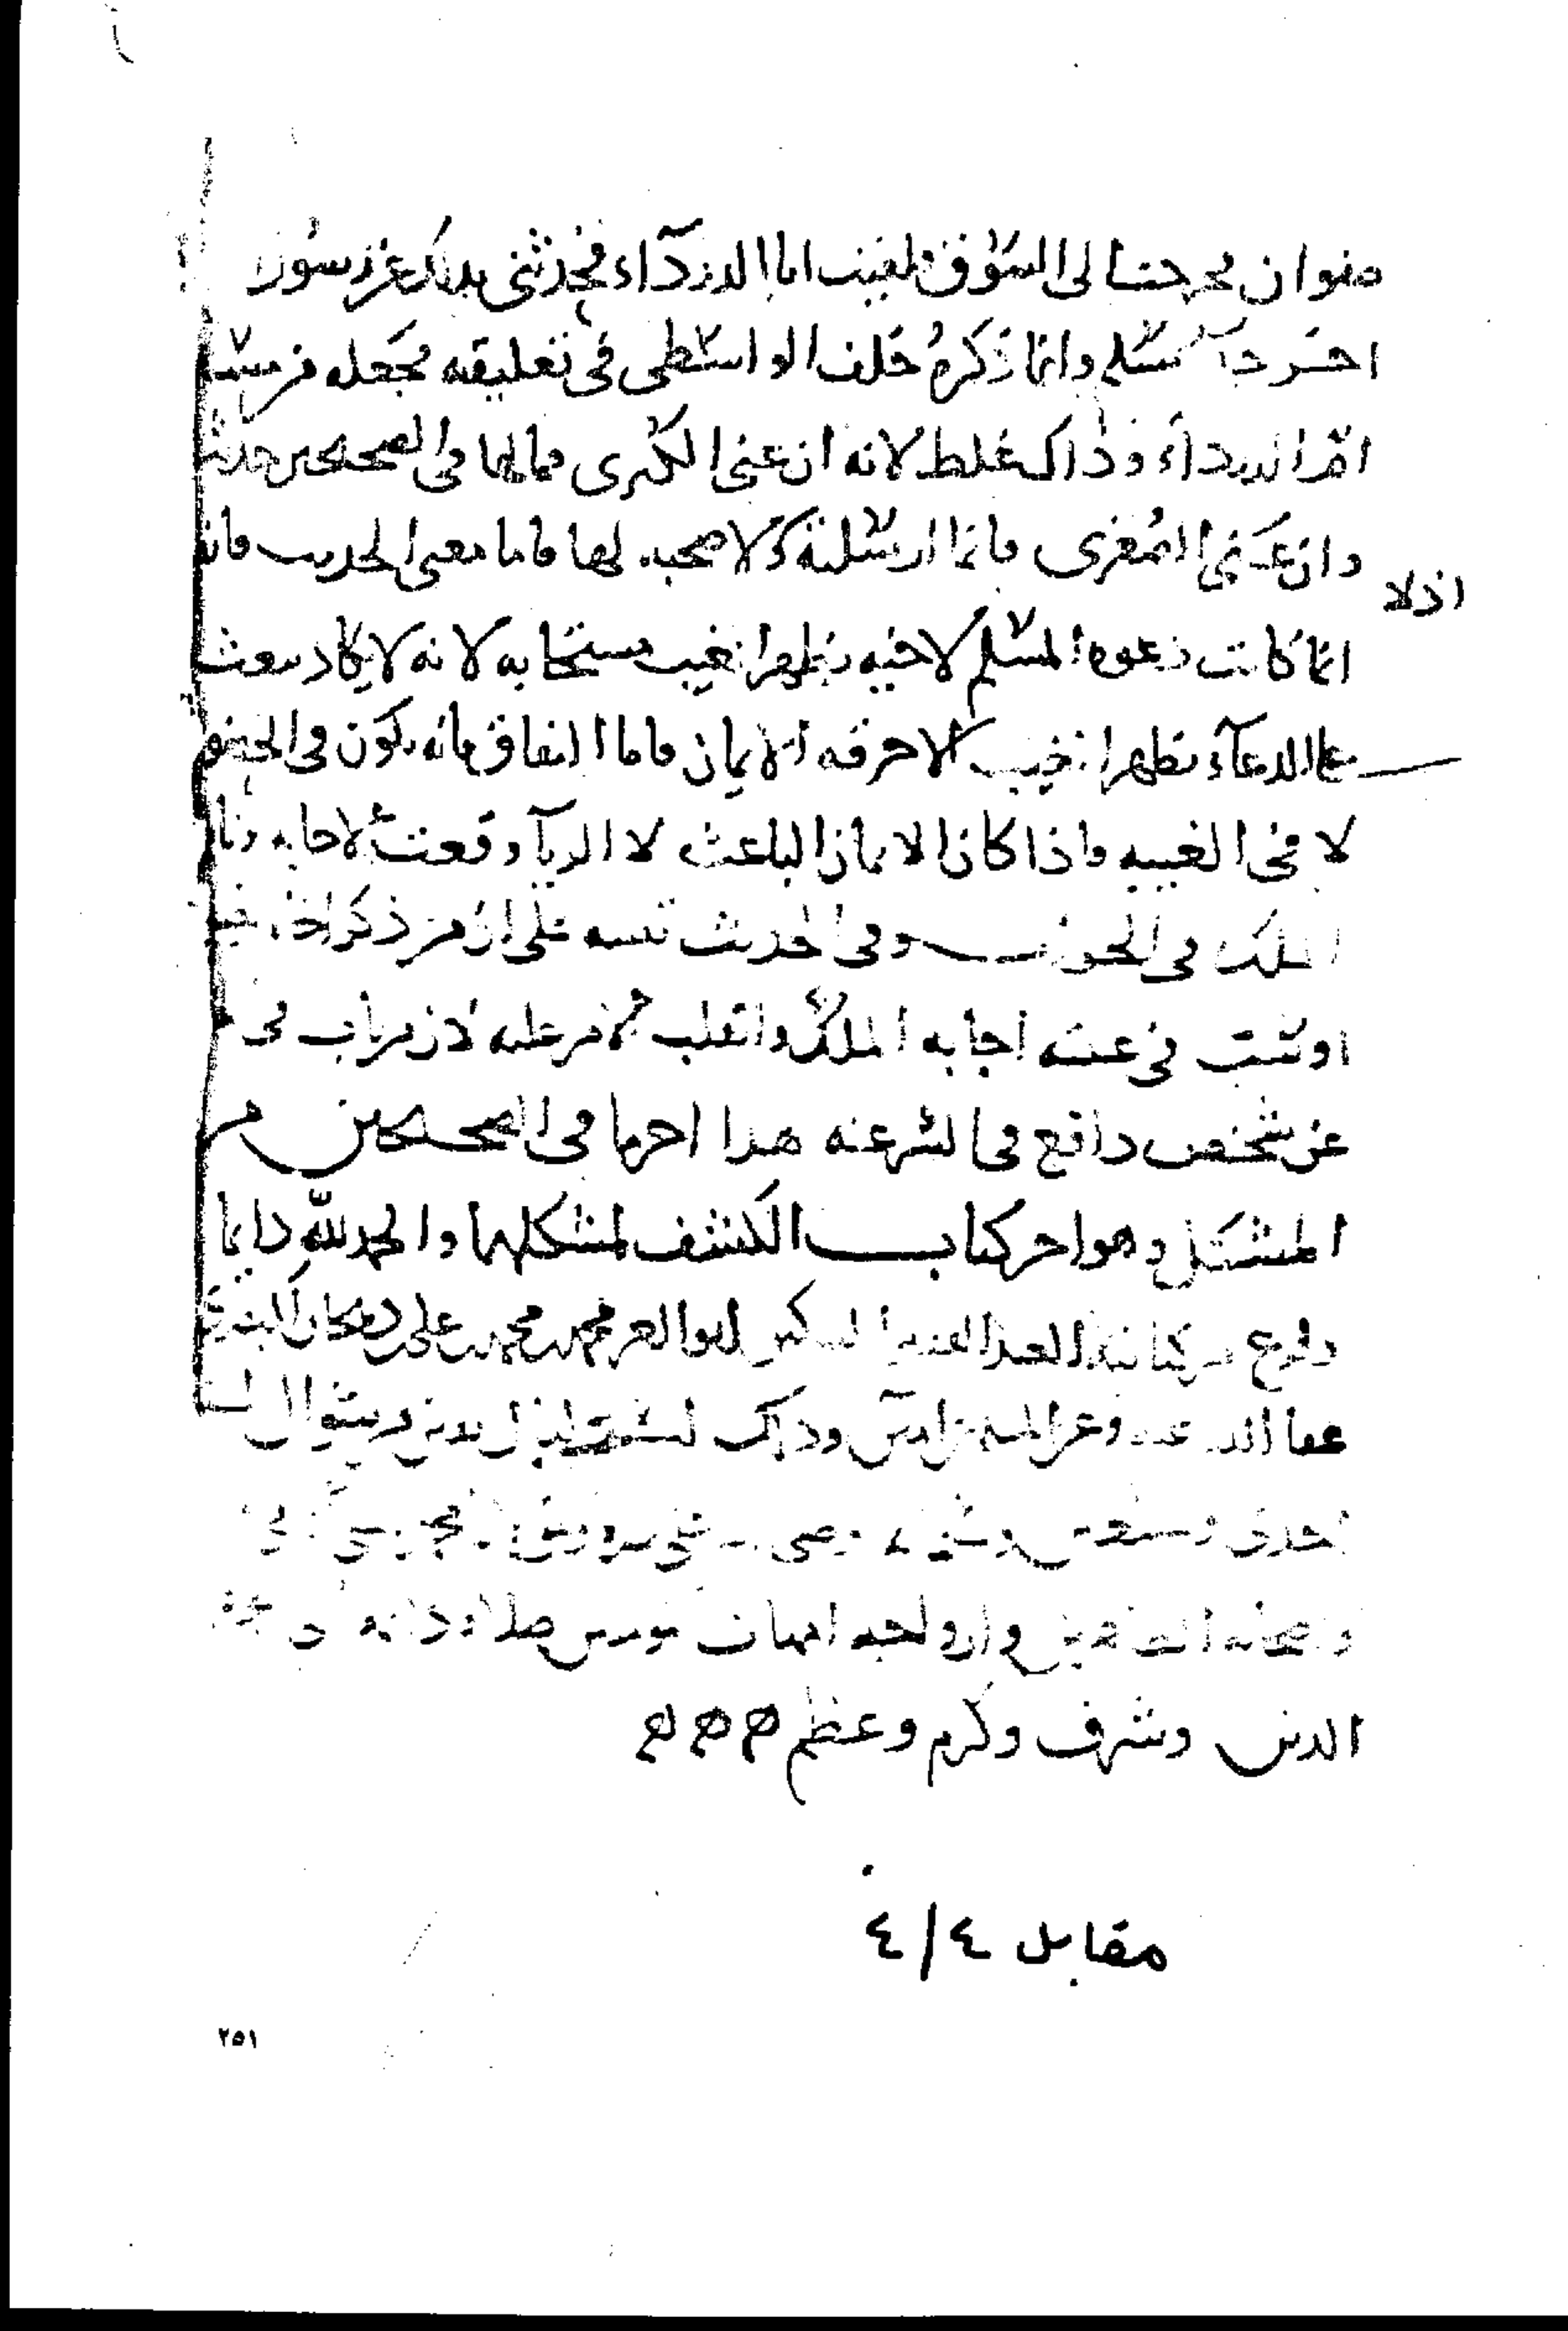 صفوان فخرجت الى السوق فلقيت ابا الدرداء فحدثني بذلك عن رسول
اخرجا مسلم وانما ذكره خلف الواسطي في تعليقه فجعله من مسند
ام الدرداء وذاك غلط لانه ان عنى الكبرى فما لها في الصحيحين حديث
وان عنى الصغرى فانما ارسلته ولا صحبه لها فاما معنى الحديث فانه
اذ لا
انما كانت دعوه المسلم لاخيه بظهر الغيب مستجابه لانه لا يكاد يبعث
على الدعاء بظهر الغيب الا الايمان فاما النفاق فانه يكون في الحضور
لا في الغيبه واذا كان الايمان الباعث لا الريا وقعت الاجابه
الملك في الجواب وفي الحديث تنبيه على ان من ذكر اخاه
اجابه الملك وانقلب الامر عليه لان من ناب في
عن شخص دافع في الشر عنه هذا اخر ما في الصحيحين من
المشكل وهو اخر كتاب الكشف لمشكلهما والحمد لله دايما
وفرغ من كتابته العبد الفقير المسكين ابو العز محمد بن محمد بن علي
عفا الله عنه وعن المسلمين امين وذلك لست ليال بقين من شوال
وازواجه امهات المومنين صلاة دائمه
الدين وشرف وكرم وعظم
مقابل ٤/٤
٢٥١